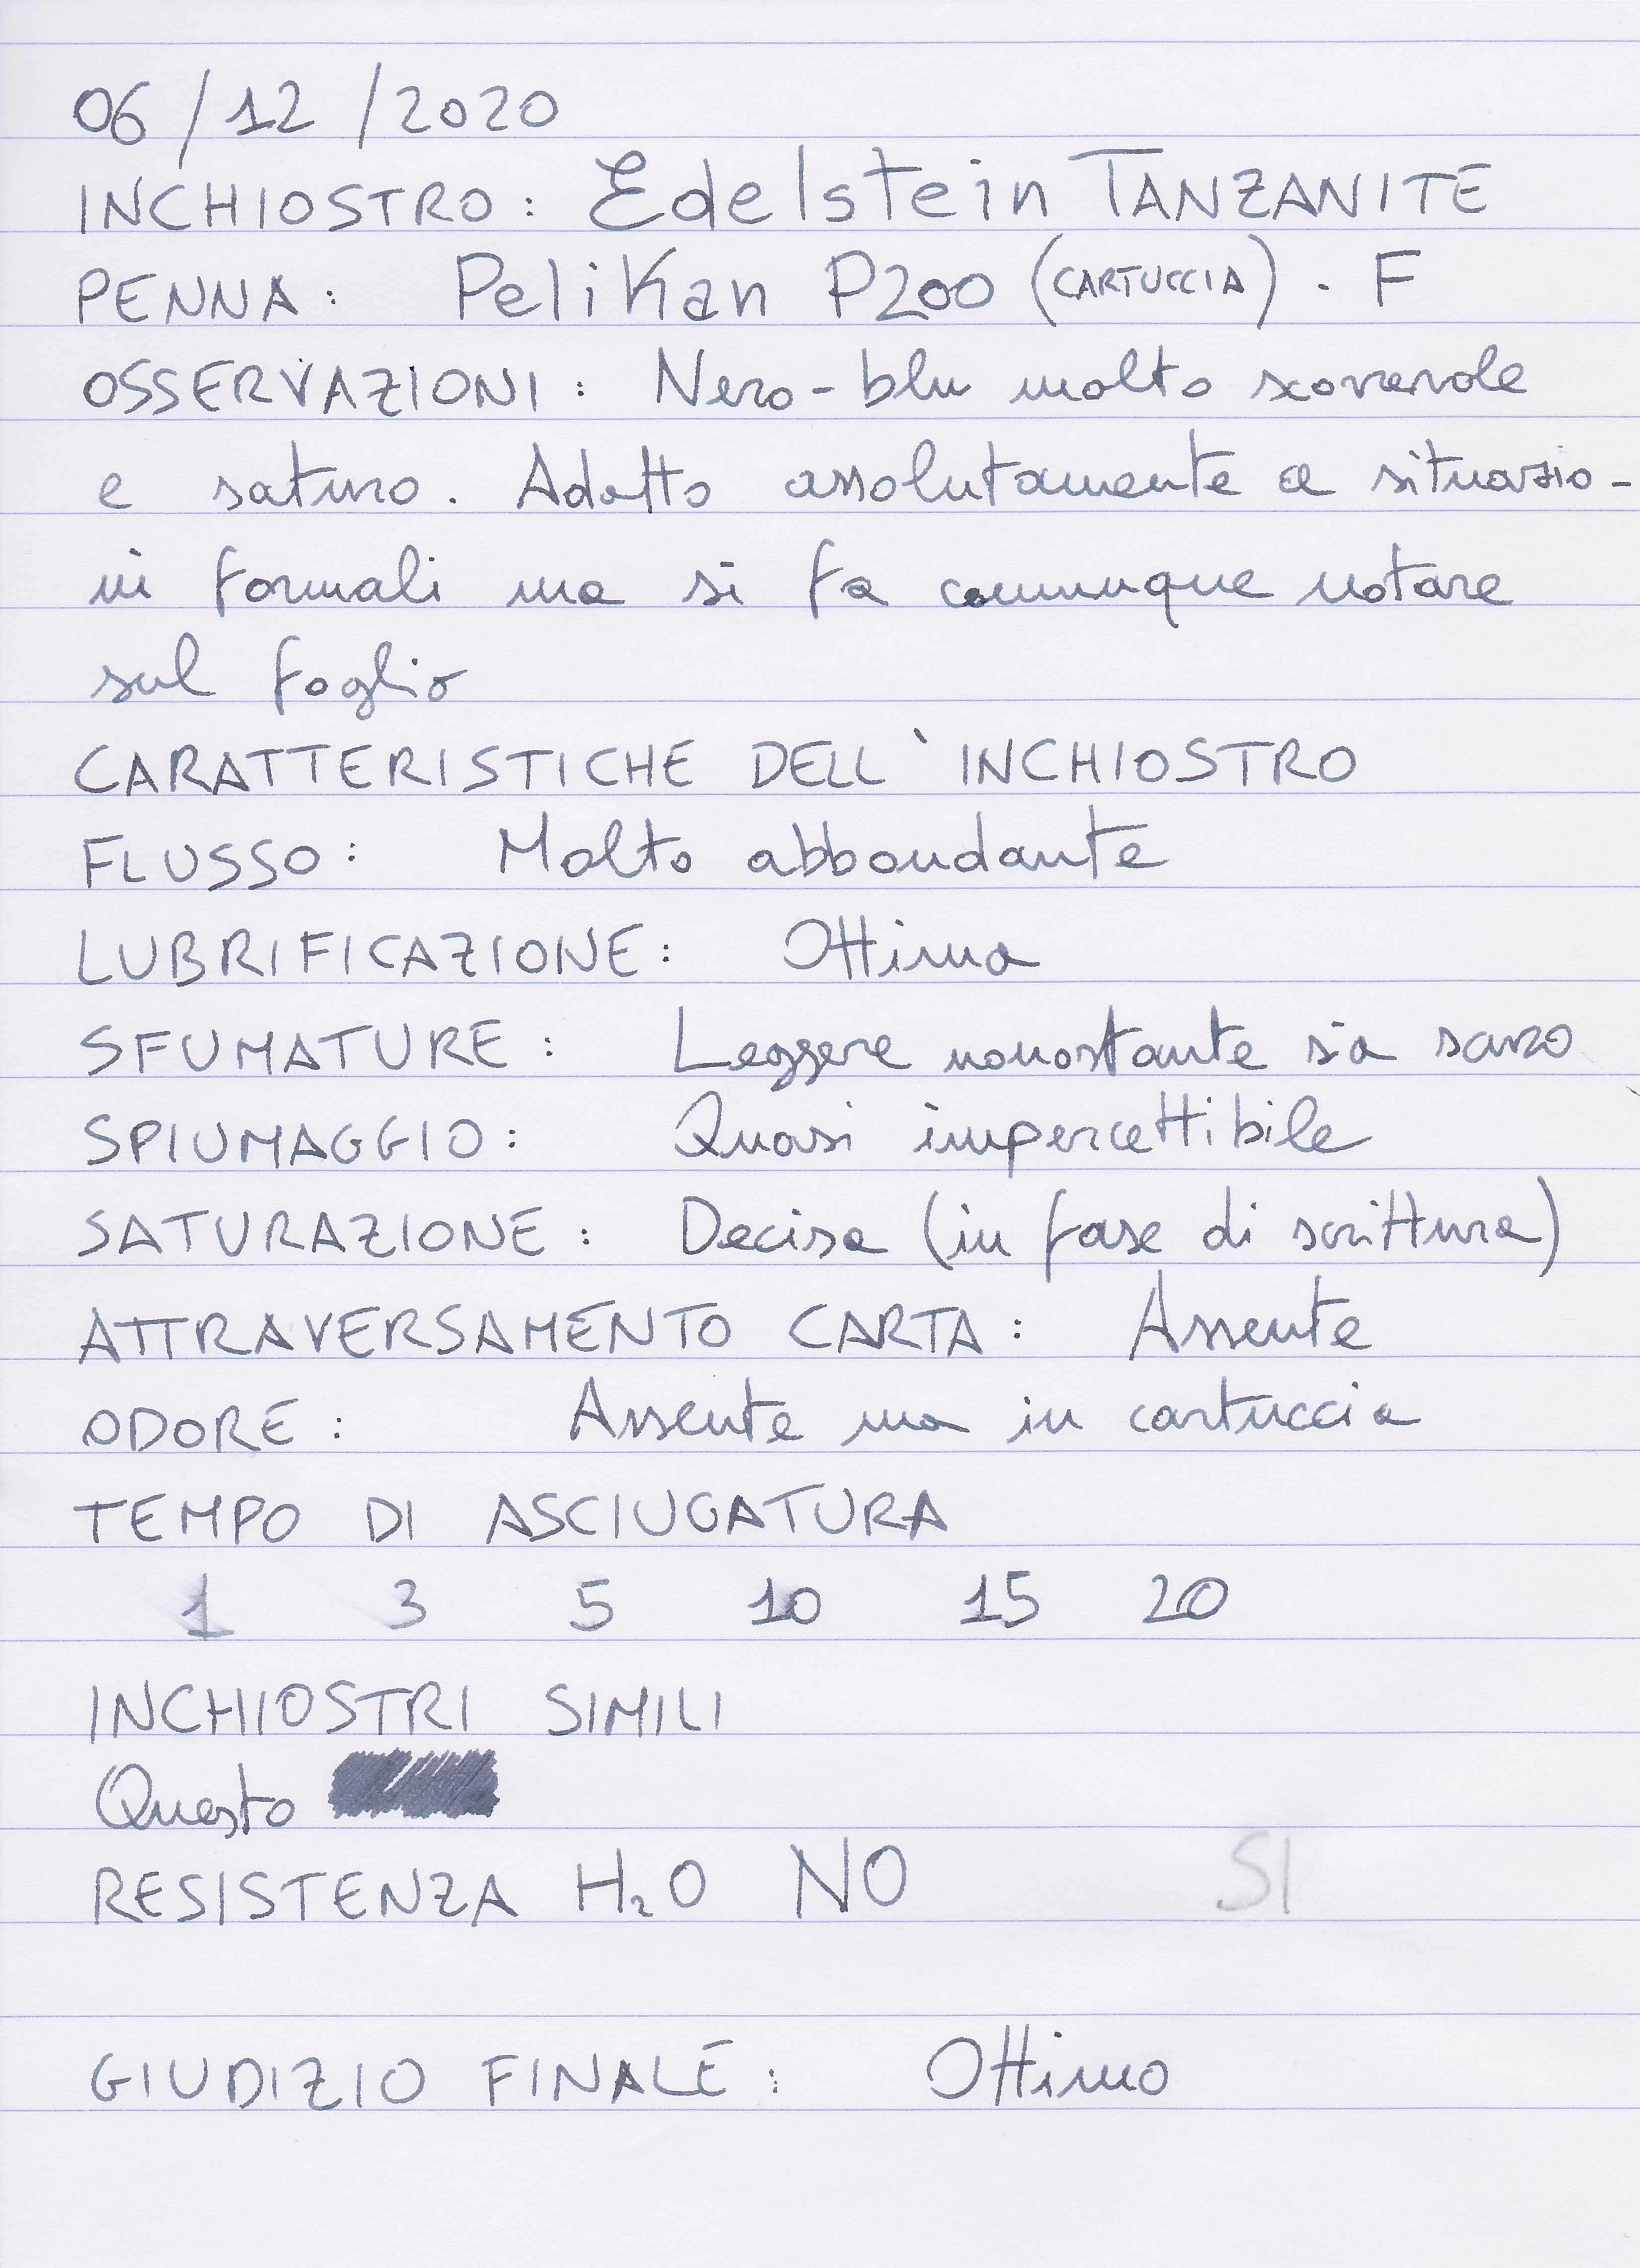 06/12/2020
INCHIOSTRO: Edelstein TANZANITE
PENNA: Pelikan P200 (CARTUCCIA). F
OSSERVAZIONI: Nero-blu molto scorrevole
e saturo. Adatto assolutamente a situazio-
ni formali ma si fa comunque notare
sul foglio
CARATTERISTICHE DELL'INCHIOSTRO
FLUSSO: Molto abbondante
LUBRIFICAZIONE: Ottima
SFUMATURE: Leggere nonostante sia scuro
SPIUMAGGIO: Quasi impercettibile
SATURAZIONE: Decisa (in fase di scrittura)
ATTRAVERSAMENTO CARTA: Assente
ODORE: Assente ma in cartuccia
TEMPO DI ASCIUGATURA
1 3 5 10 15 20
INCHIOSTRI SIMILI
Questo
RESISTENZA H₂O NO SI
GIUDIZIO FINALE: Ottimo